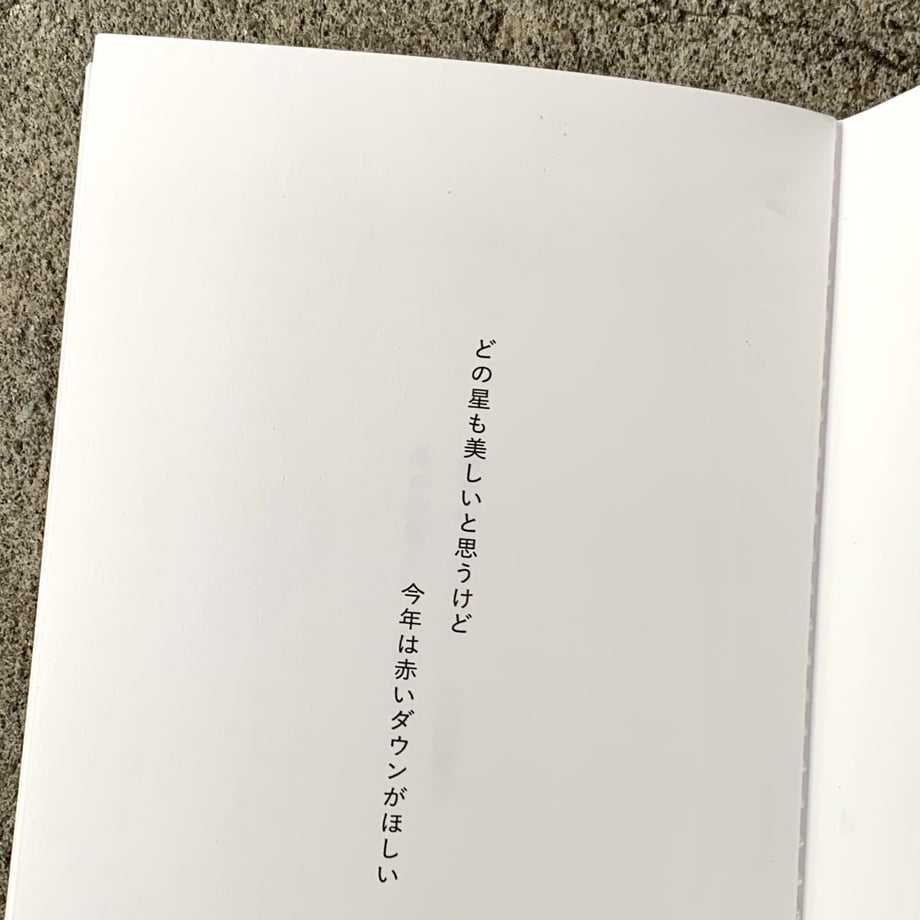 どの星も美しいと思うけど
今年は赤いダウンがほしい